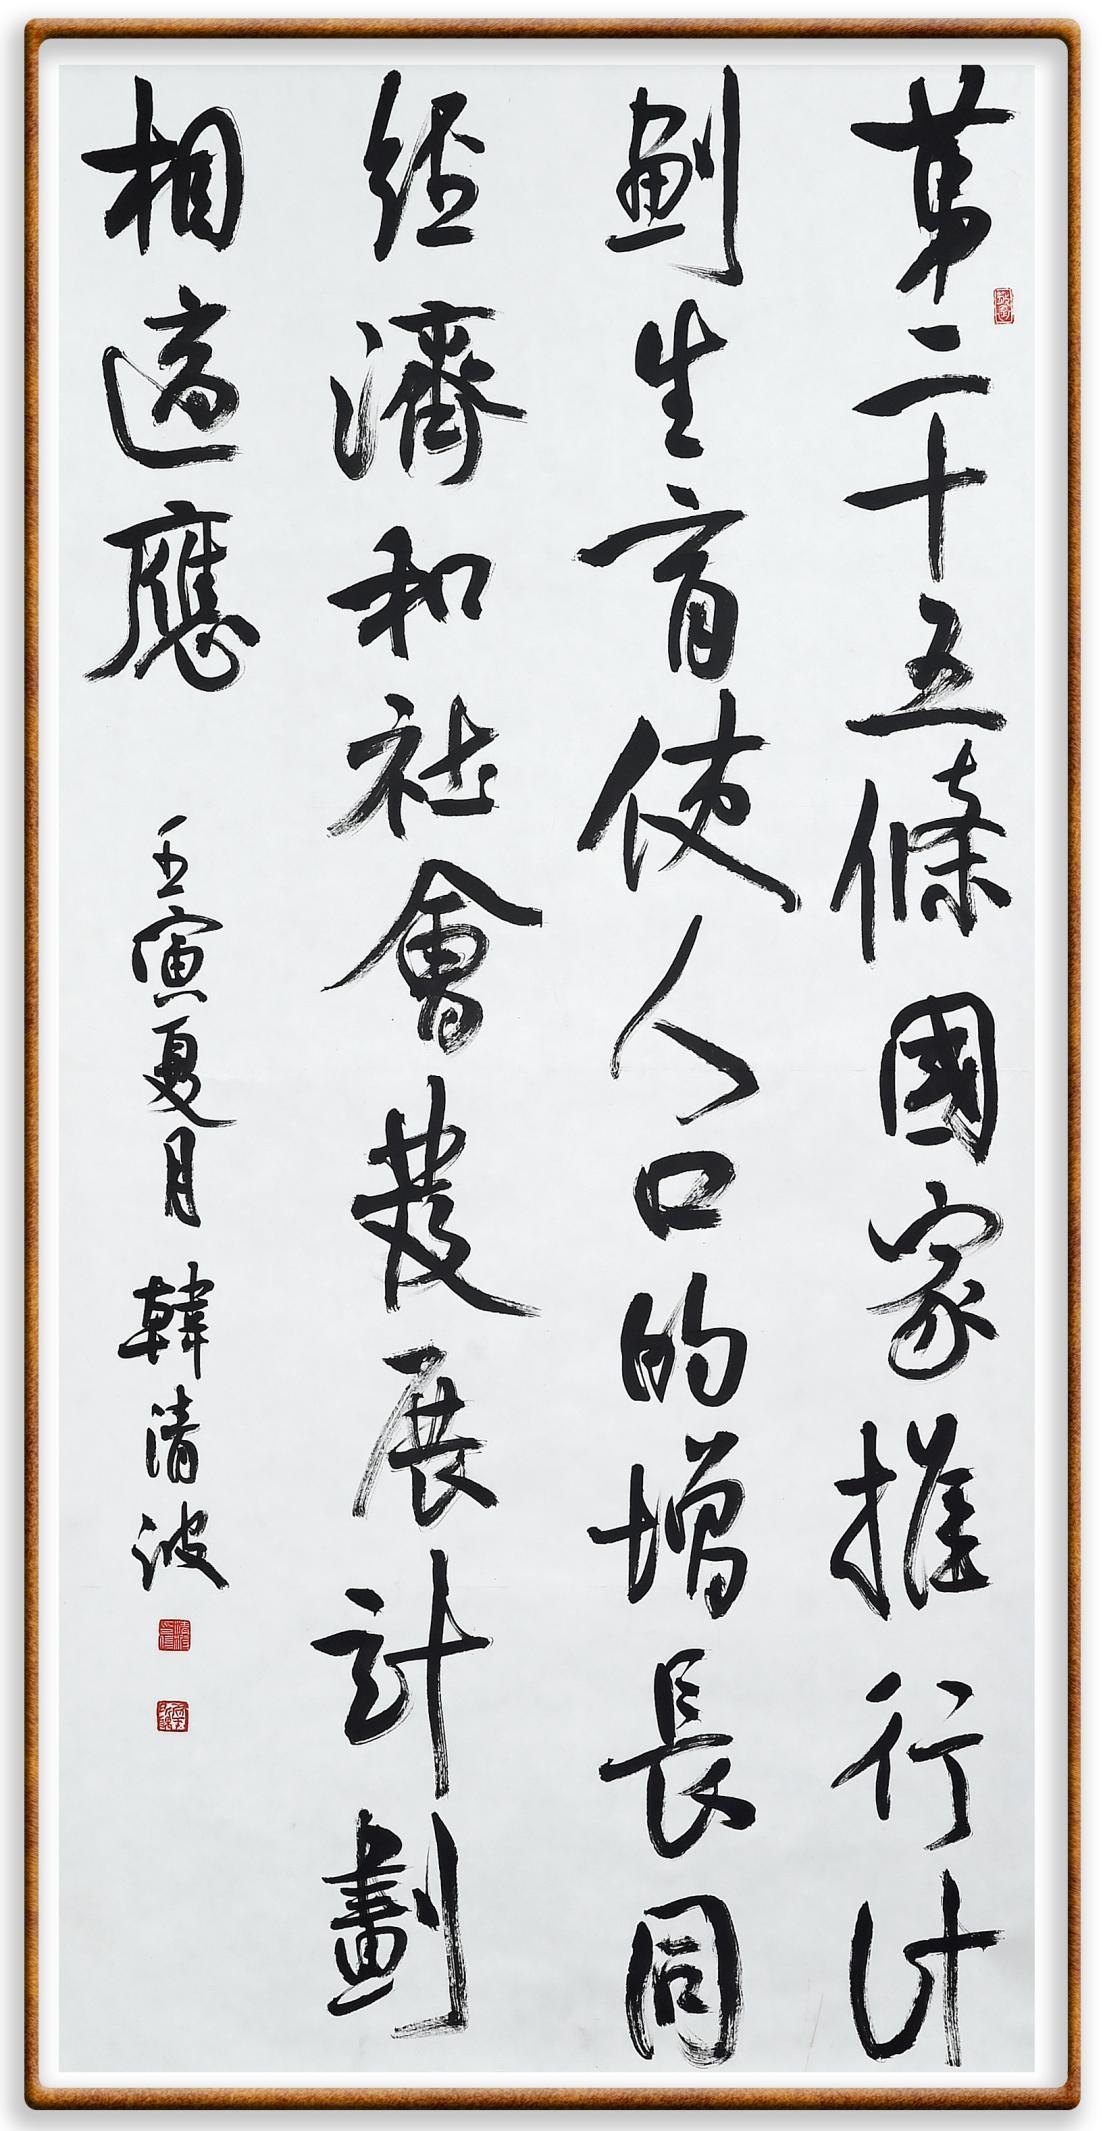 第二十五條國家推行计
劃生育使人口的增長同
經濟和社會發展計劃
相適應
壬寅夏月韓清波